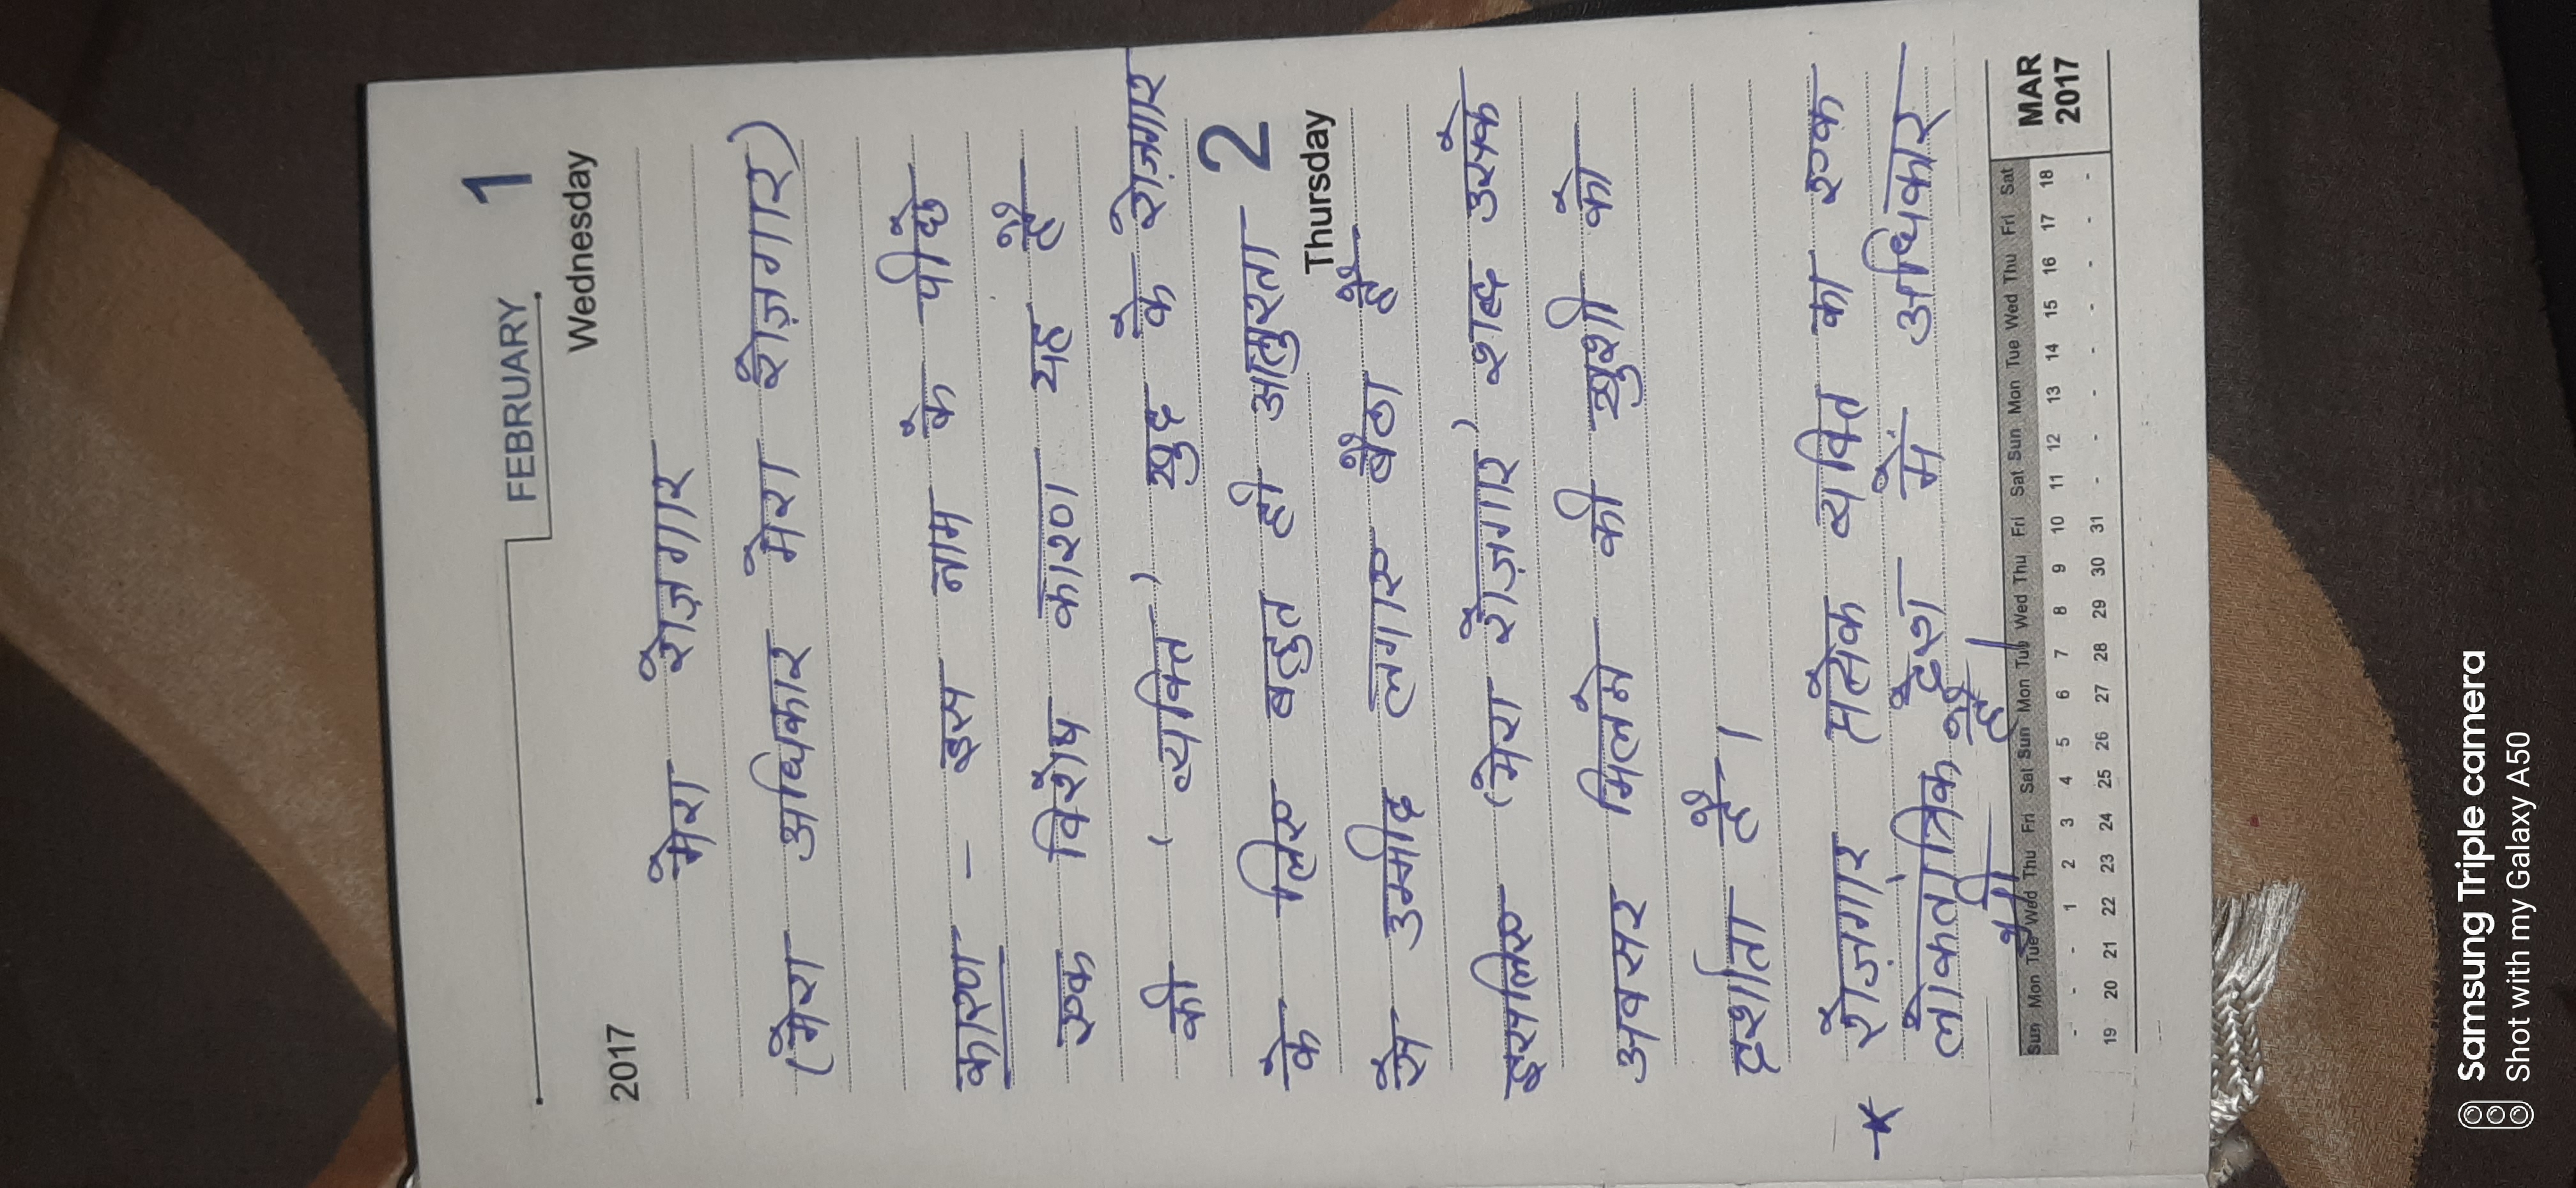 FEBRUARY 1
2017 Wednesday
मेरा रोज़गार
(मेरा अधिकार मेरा रोज़गार)
कारण - इस नाम के पीछे
एक विशेष कारण यह है
की ' व्यक्ति ' खुद के रोज़गार
2
के लिए बहुत ही आतुरता
Thursday
से उम्मीद लगाए बैठा है
इसलिए 'मेरा रोज़गार' शब्द उसके
अवसर मिलने की खुशी को
दर्शाता है।
* रोज़गार प्रत्येक व्यक्ति का एक
लोकतांत्रिक देश में अधिकार
भी है।
Sun Mon Tue Wed Thu Fri Sat Sun Mon Tue Wed Thu Fri Sat Sun Mon Tue Wed Thu Fri Sat MAR
- - - 1 2 3 4 5 6 7 8 9 10 11 12 13 14 15 16 17 18 2017
19 20 21 22 23 24 25 26 27 28 29 30 31 - - - - - - - -
Samsung Triple camera
Shot with my Galaxy A50